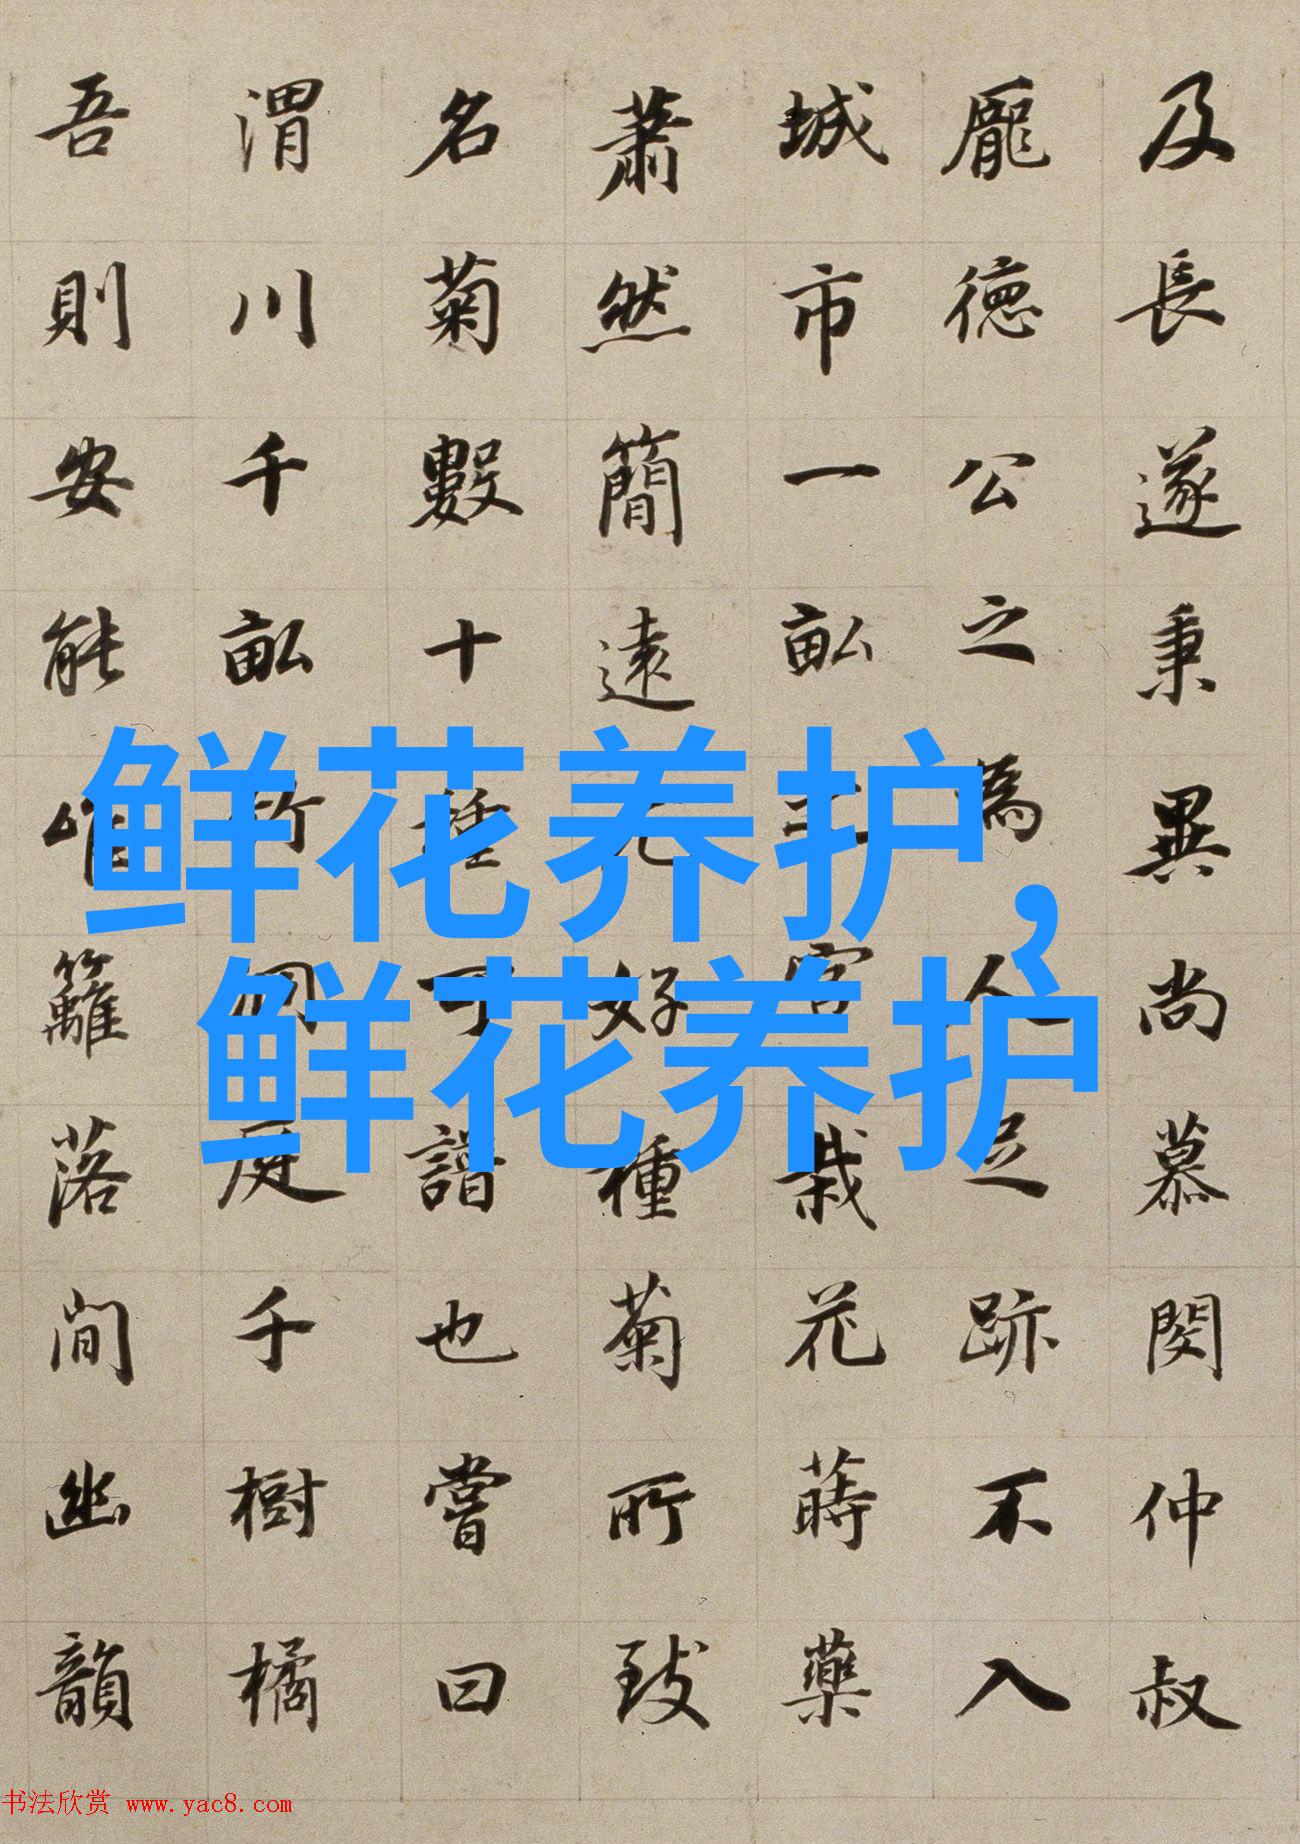 及長遂秉異尚慕閔仲叔
龐德公之為人足跡不入
城市一畝宮栽花蒔藥
蕭然簡遠尤好種菊所致
名菊數十種可譜也嘗曰
渭川千畝竹洞庭千樹橘
吾則安能唯籬落間幽韻
鲜花养护，
鲜花养护
书法欣赏 www.yac8.com